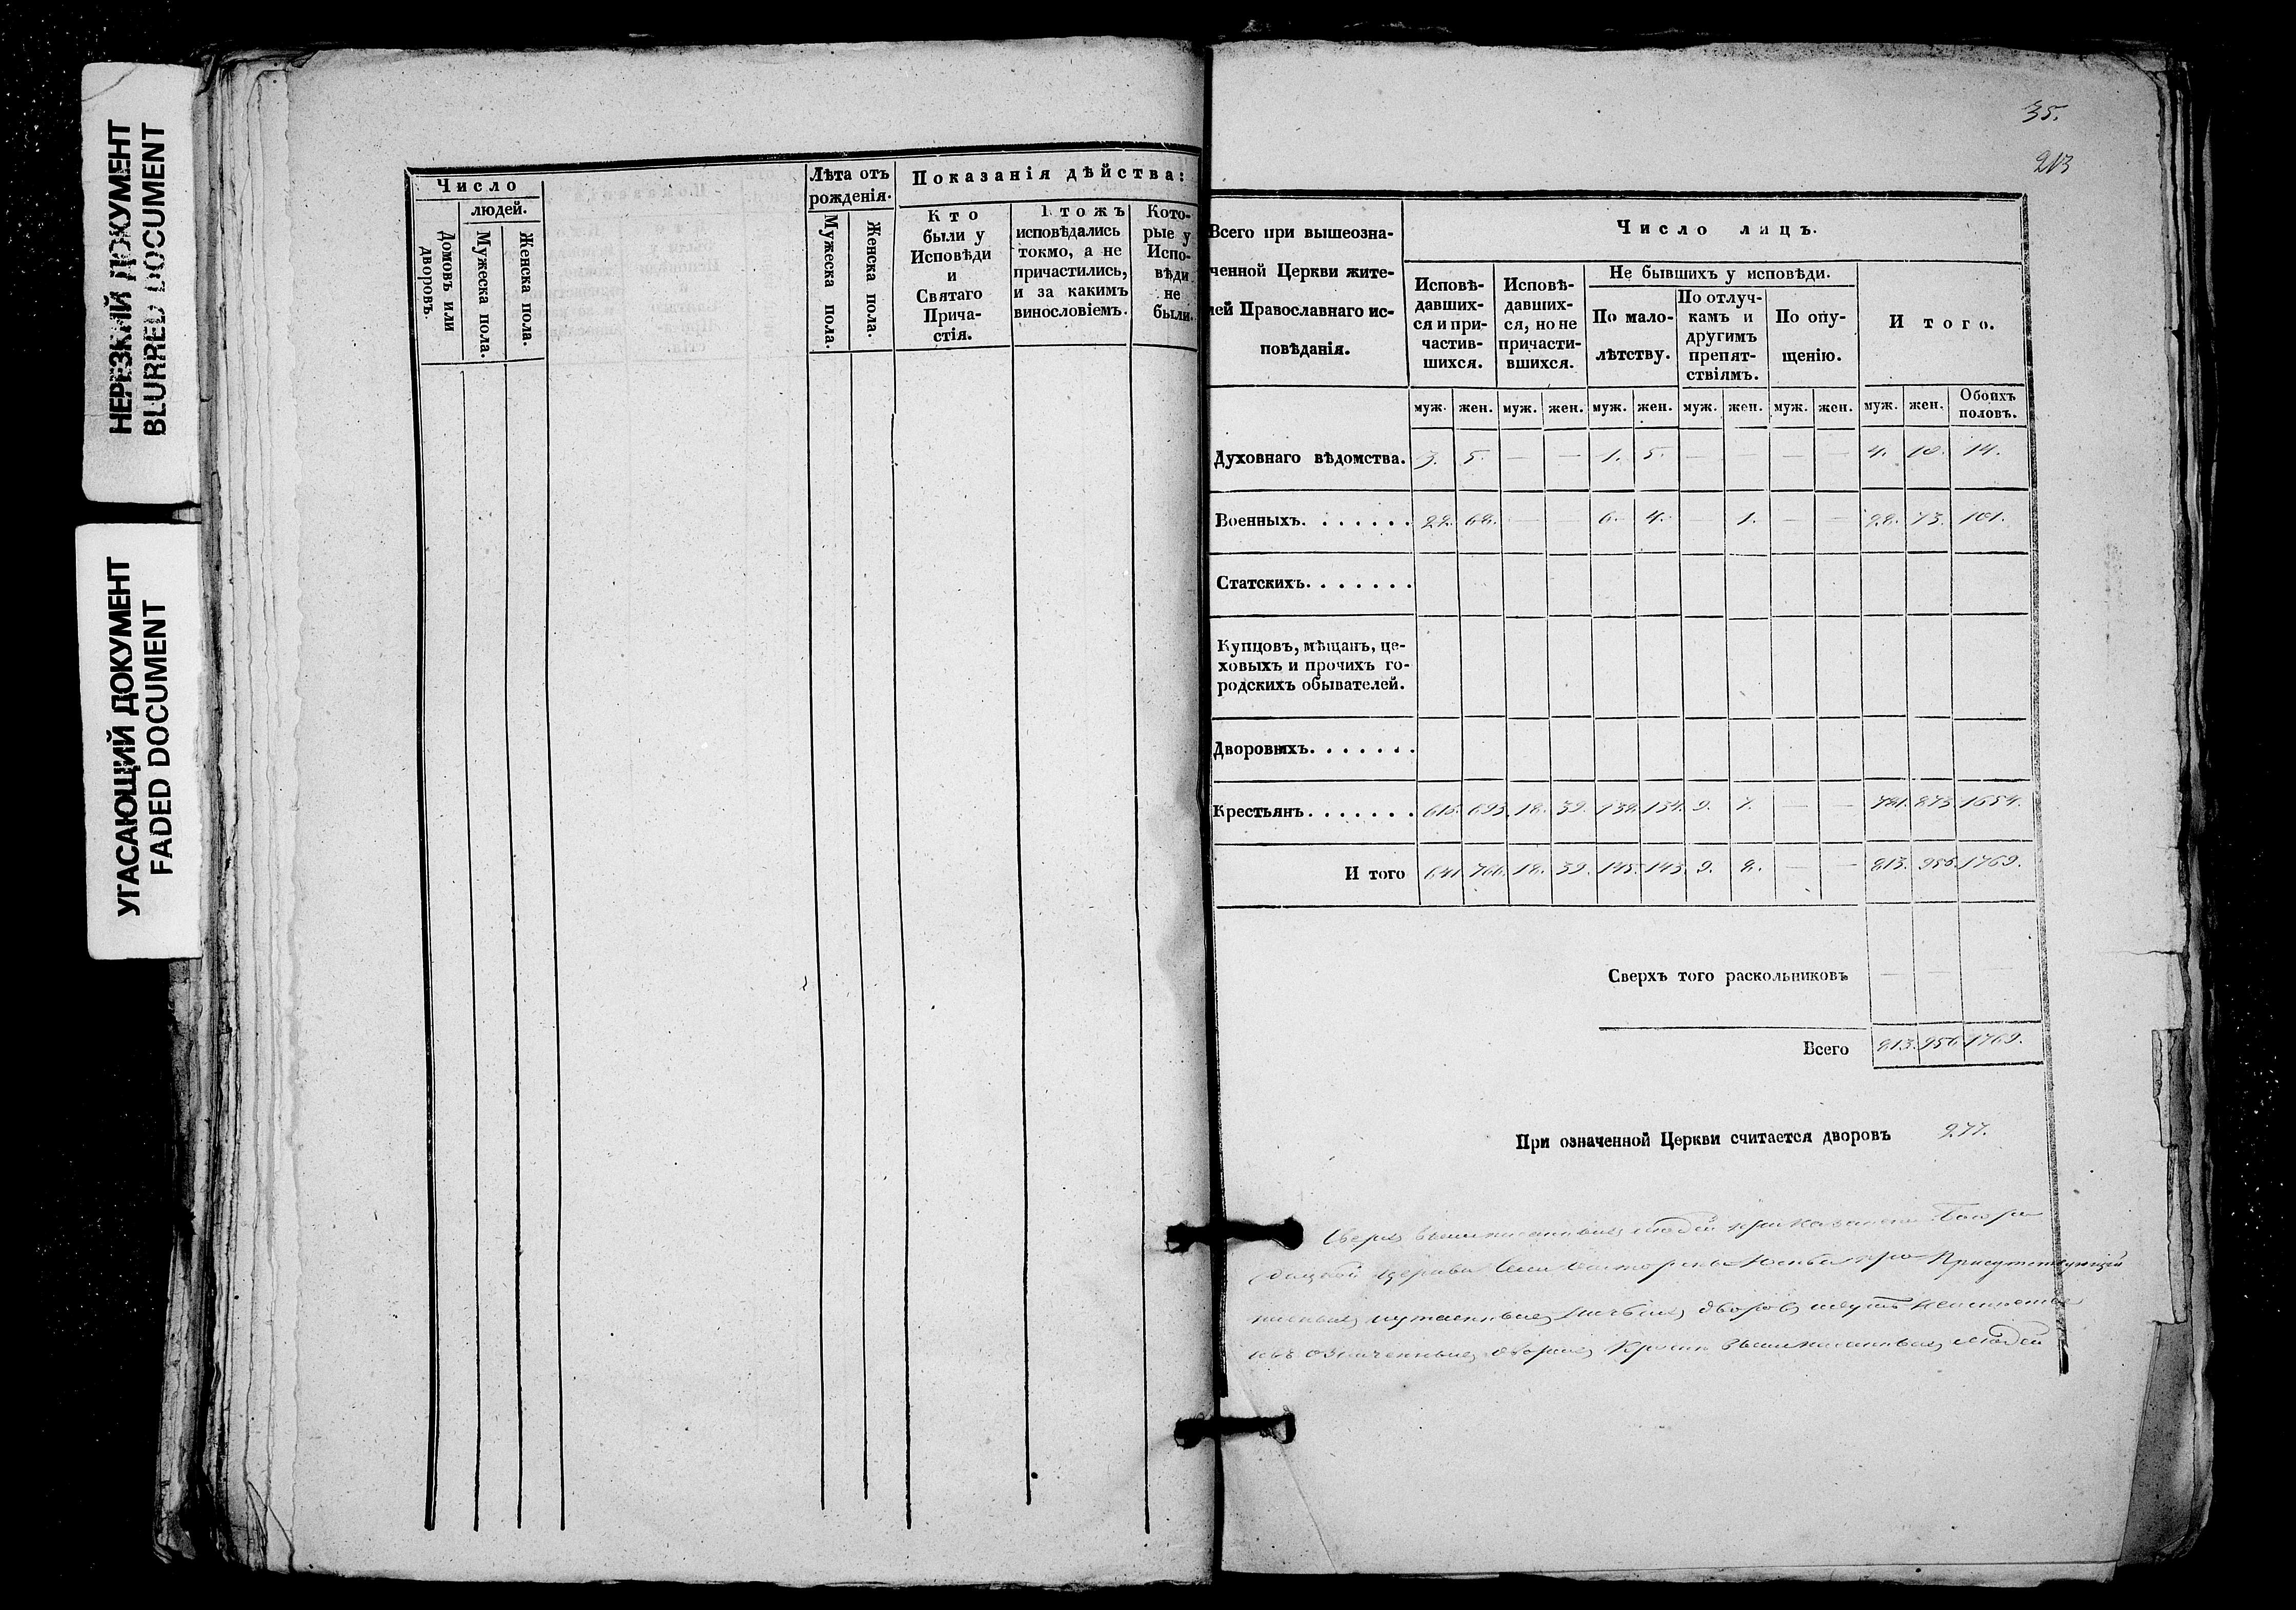 НЕРЕЗКИЙ ДОКУМЕНТ
BLURRED DOCUMENT
УГАСАЮЩИЙ ДОКУМЕНТ
FADED DOCUMENT
Число
людей.
Домовъ или дворовъ.
Мужеска пола.
Женска пола.
Лѣта отъ
рожденія.
Мужеска пола.
Женска пола.
Показанія дѣйства:
Кто
были у
Исповѣди
и
Святаго
Прича-
стія.
тожъ
исповѣдались
токмо, а не
причастились,
и за какимъ
винословіемъ.
Кото-
рые у
Испо-
вѣди
не
были.
35.
213
Всего при вышеозна-
ченной Церкви жите-
лей Православнаго ис-
повѣданія.
Число лицъ.
Исповѣ-
давших-
ся и при-
частив-
шихся.
Исповѣ-
давших-
ся, но не
причасти-
вшихся.
Не бывшихъ у исповѣди.
По мало-
лѣтству.
По отлуч-
камъ и
другимъ
препят-
ствіямъ.
По опу-
щенію.
Итого.
муж. жен. муж. жен. муж. жен. муж. жен. муж. жен. муж. жен. Обоихъ половъ.
Духовнаго вѣдомства. 3. 5. — — 1. 5. — — — — 4. 10. 14.
Военныхъ. . . . . . . 22. 68. — — 6. 4. — 1. — — 28. 73. 101.
Статскихъ. . . . . . .
Купцовъ, мѣщанъ, це-
ховыхъ и прочихъ го-
родскихъ обывателей.
Дворовыхъ. . . . . . .
Крестьянъ. . . . . . . 693. 18. 39. 138. 134. 9. 7. — — 781. 873. 1654.
И того 641. 766. 18. 39. 145. 143. 9. 8. — — 813. 956. 1769.
Сверхъ того раскольниковъ — — —
Всего 813. 956. 1769.
При означенной Церкви считается дворовъ 277.
Сверхъ вышеписанныхъ людей при
церкви
Присутствующій
утаенныхъ дворовъ
означенныхъ дворахъ Кромѣ вышеписанныхъ людей